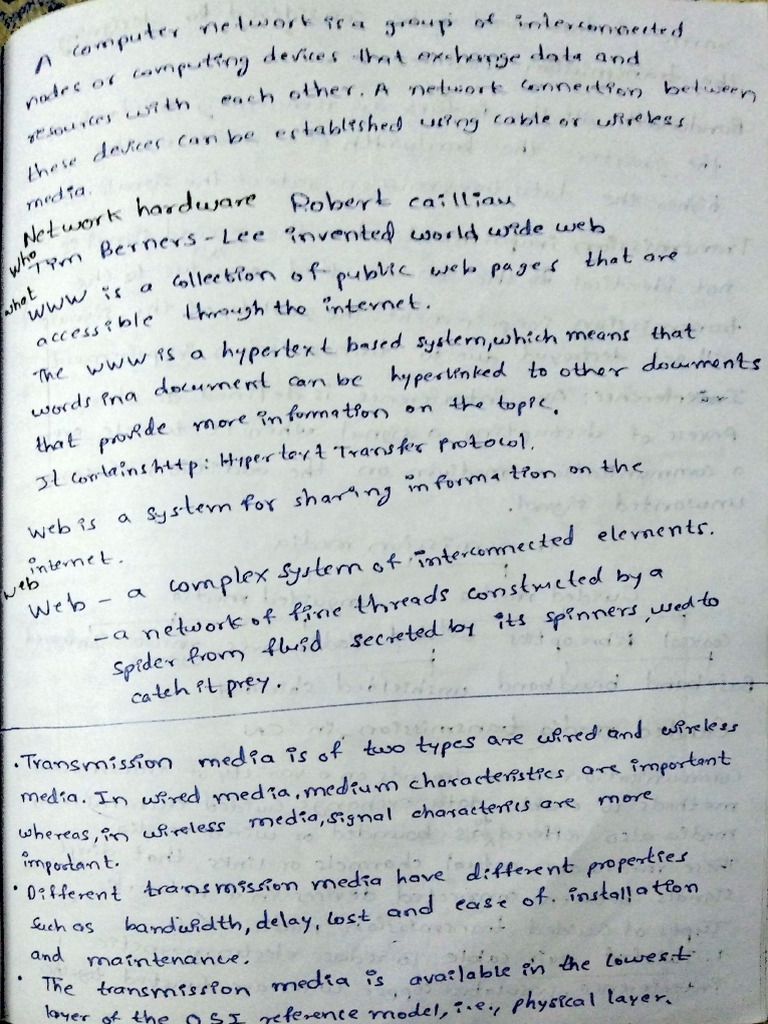 A computer network is a group of interconnected
nodes or computing devices that exchange data and
resources with each other. A network connection between
these devices can be established using cable or wireless
media.
Network hardware Robert cailliau
who Tim Berners-Lee invented world wide web
what WWW is a collection of public web pages that are
accessible through the internet.
The WWW is a hypertext based system, which means that
words in a document can be hyperlinked to other documents
that provide more information on the topic.
It contains http: Hyper text Transfer Protocol.
Web is a system for sharing information on the
internet.
web
Web - a complex system of interconnected elements.
- a network of fine threads constructed by a
spider from fluid secreted by its spinners, used to
catch it prey.
• Transmission media is of two types are wired and wireless
media. In wired media, medium characteristics are important
whereas, in wireless media, signal characterics are more
important.
• Different transmission media have different properties
such as bandwidth, delay, cost and ease of installation
and maintenance.
• The transmission media is available in the lowest
layer of the OSI reference model, i.e., physical layer.